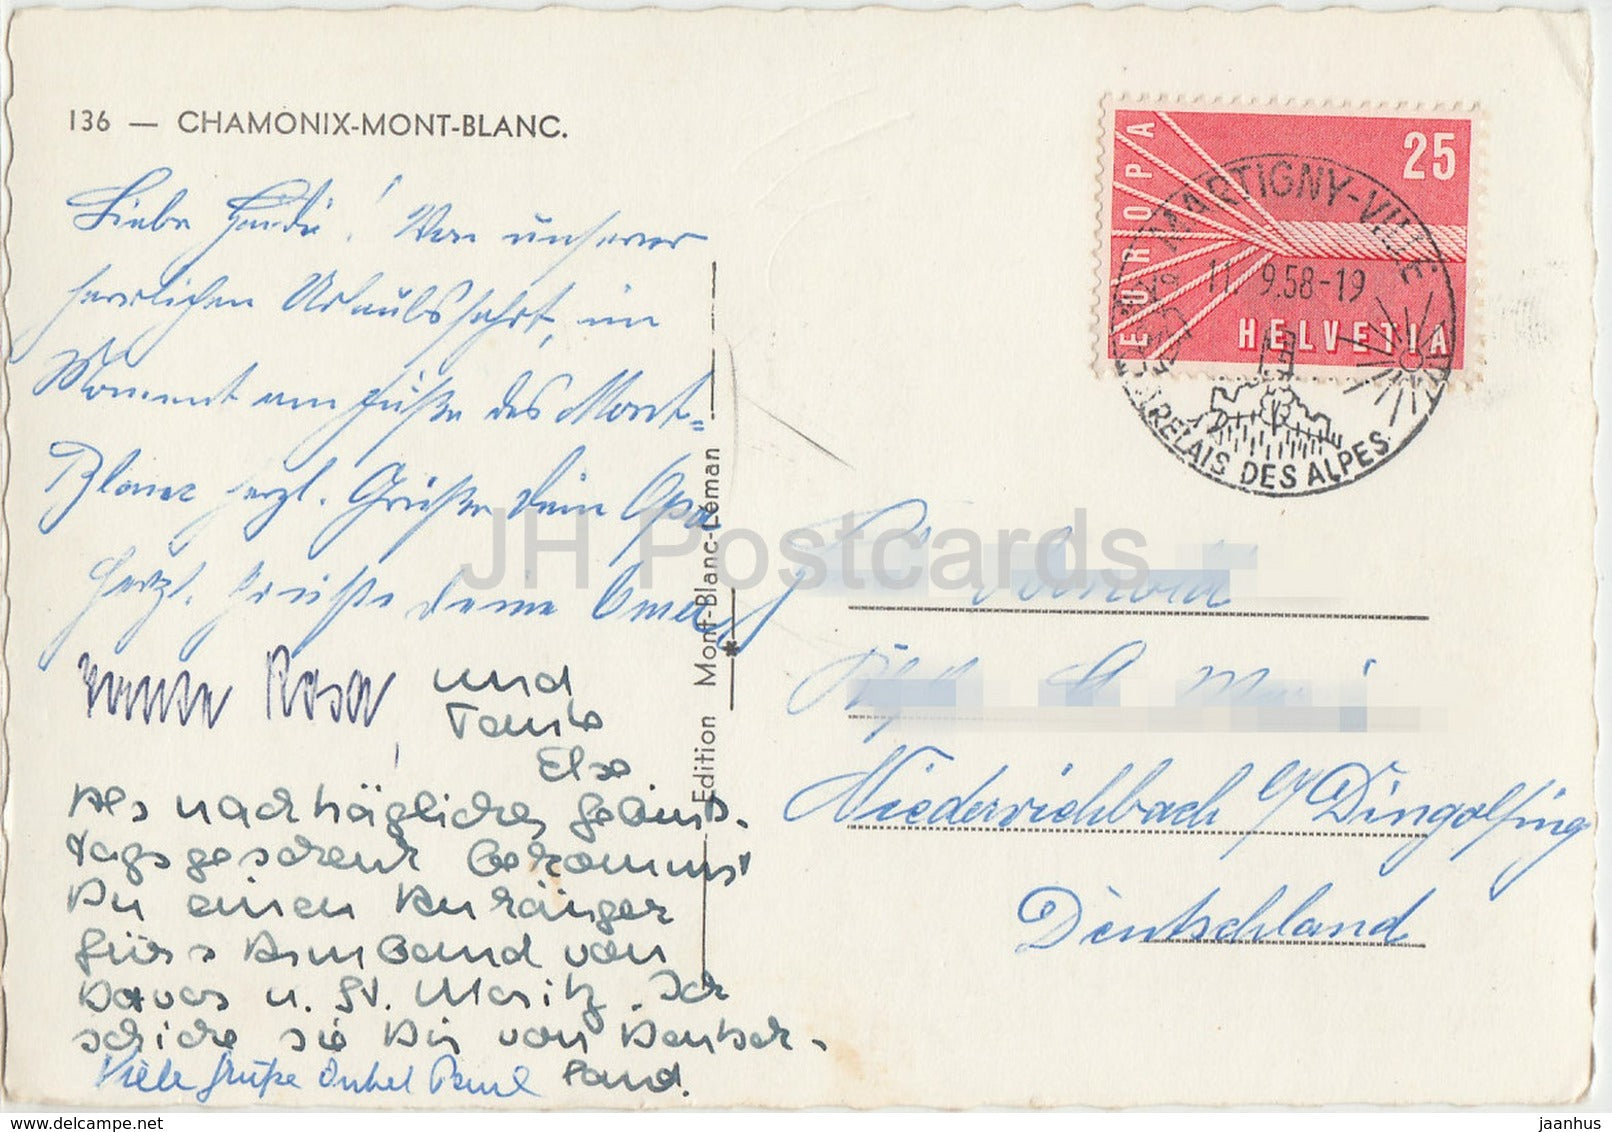 136 — CHAMONIX-MONT-BLANC.
Liebe Heidi! Von unserer
herrlichen Urlaubsfahrt, im
Moment am Füße des Mont-
Blanc herzl. Grüße Dein Opa
Herzl. Grüße deine Oma
Tante Rosa, und
Tante
Else
Als nachträgliches Geburts-
tagsgeschenk bekommst
Du einen Anhänger
fürs Armband von
Davos u. St. Moritz. Ich
schicke sie Dir von Deutsch-
land.
Viele Grüße Onkel Paul
Edition Mont-Blanc-Léman
EUROPA
25
HELVETIA
MARTIGNY-VILLE
11. 9.58-19
RELAIS DES ALPES
Niederviehbach b/Dingolfing
Deutschland
JH Postcards
www.delcampe.net
jaanhus